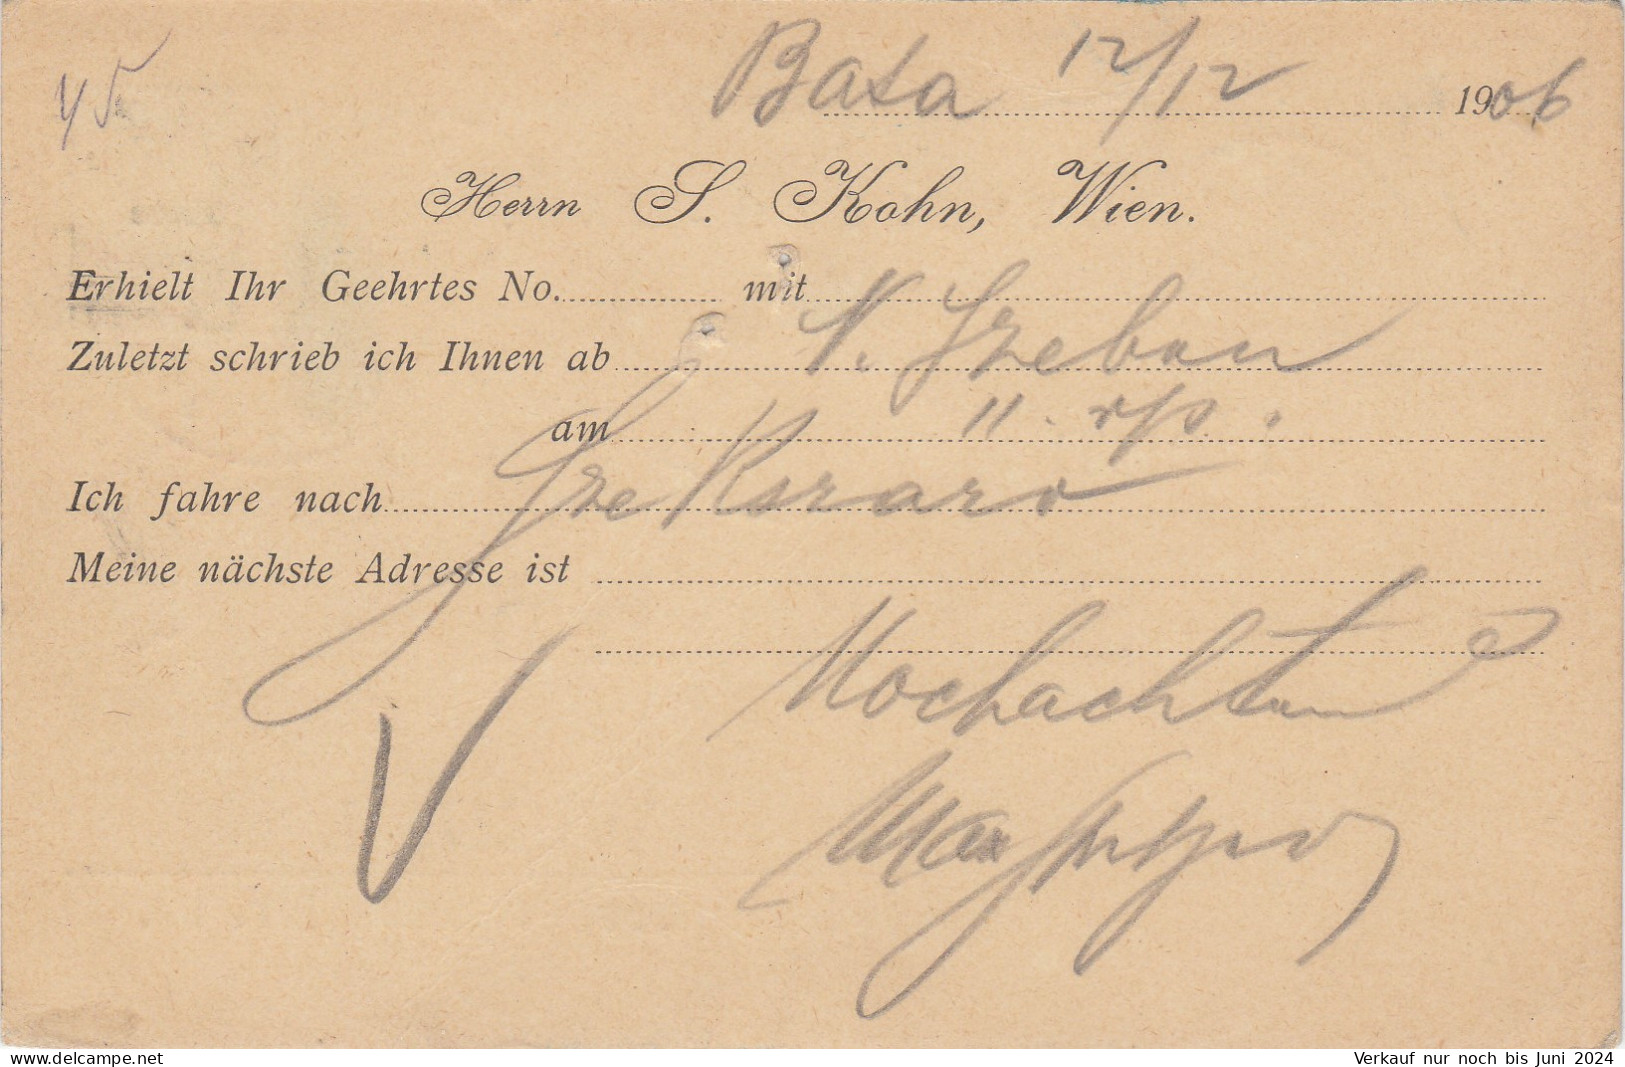 Bata 12/12 1906
45
Herrn S. Kohn, Wien.
Erhielt Ihr Geehrtes No. mit
Zuletzt schrieb ich Ihnen ab N. Szeben
am 11.
Ich fahre nach Szekszard
Meine nächste Adresse ist
Hochachtend
Max
www.delcampe.net
Verkauf nur noch bis Juni 2024